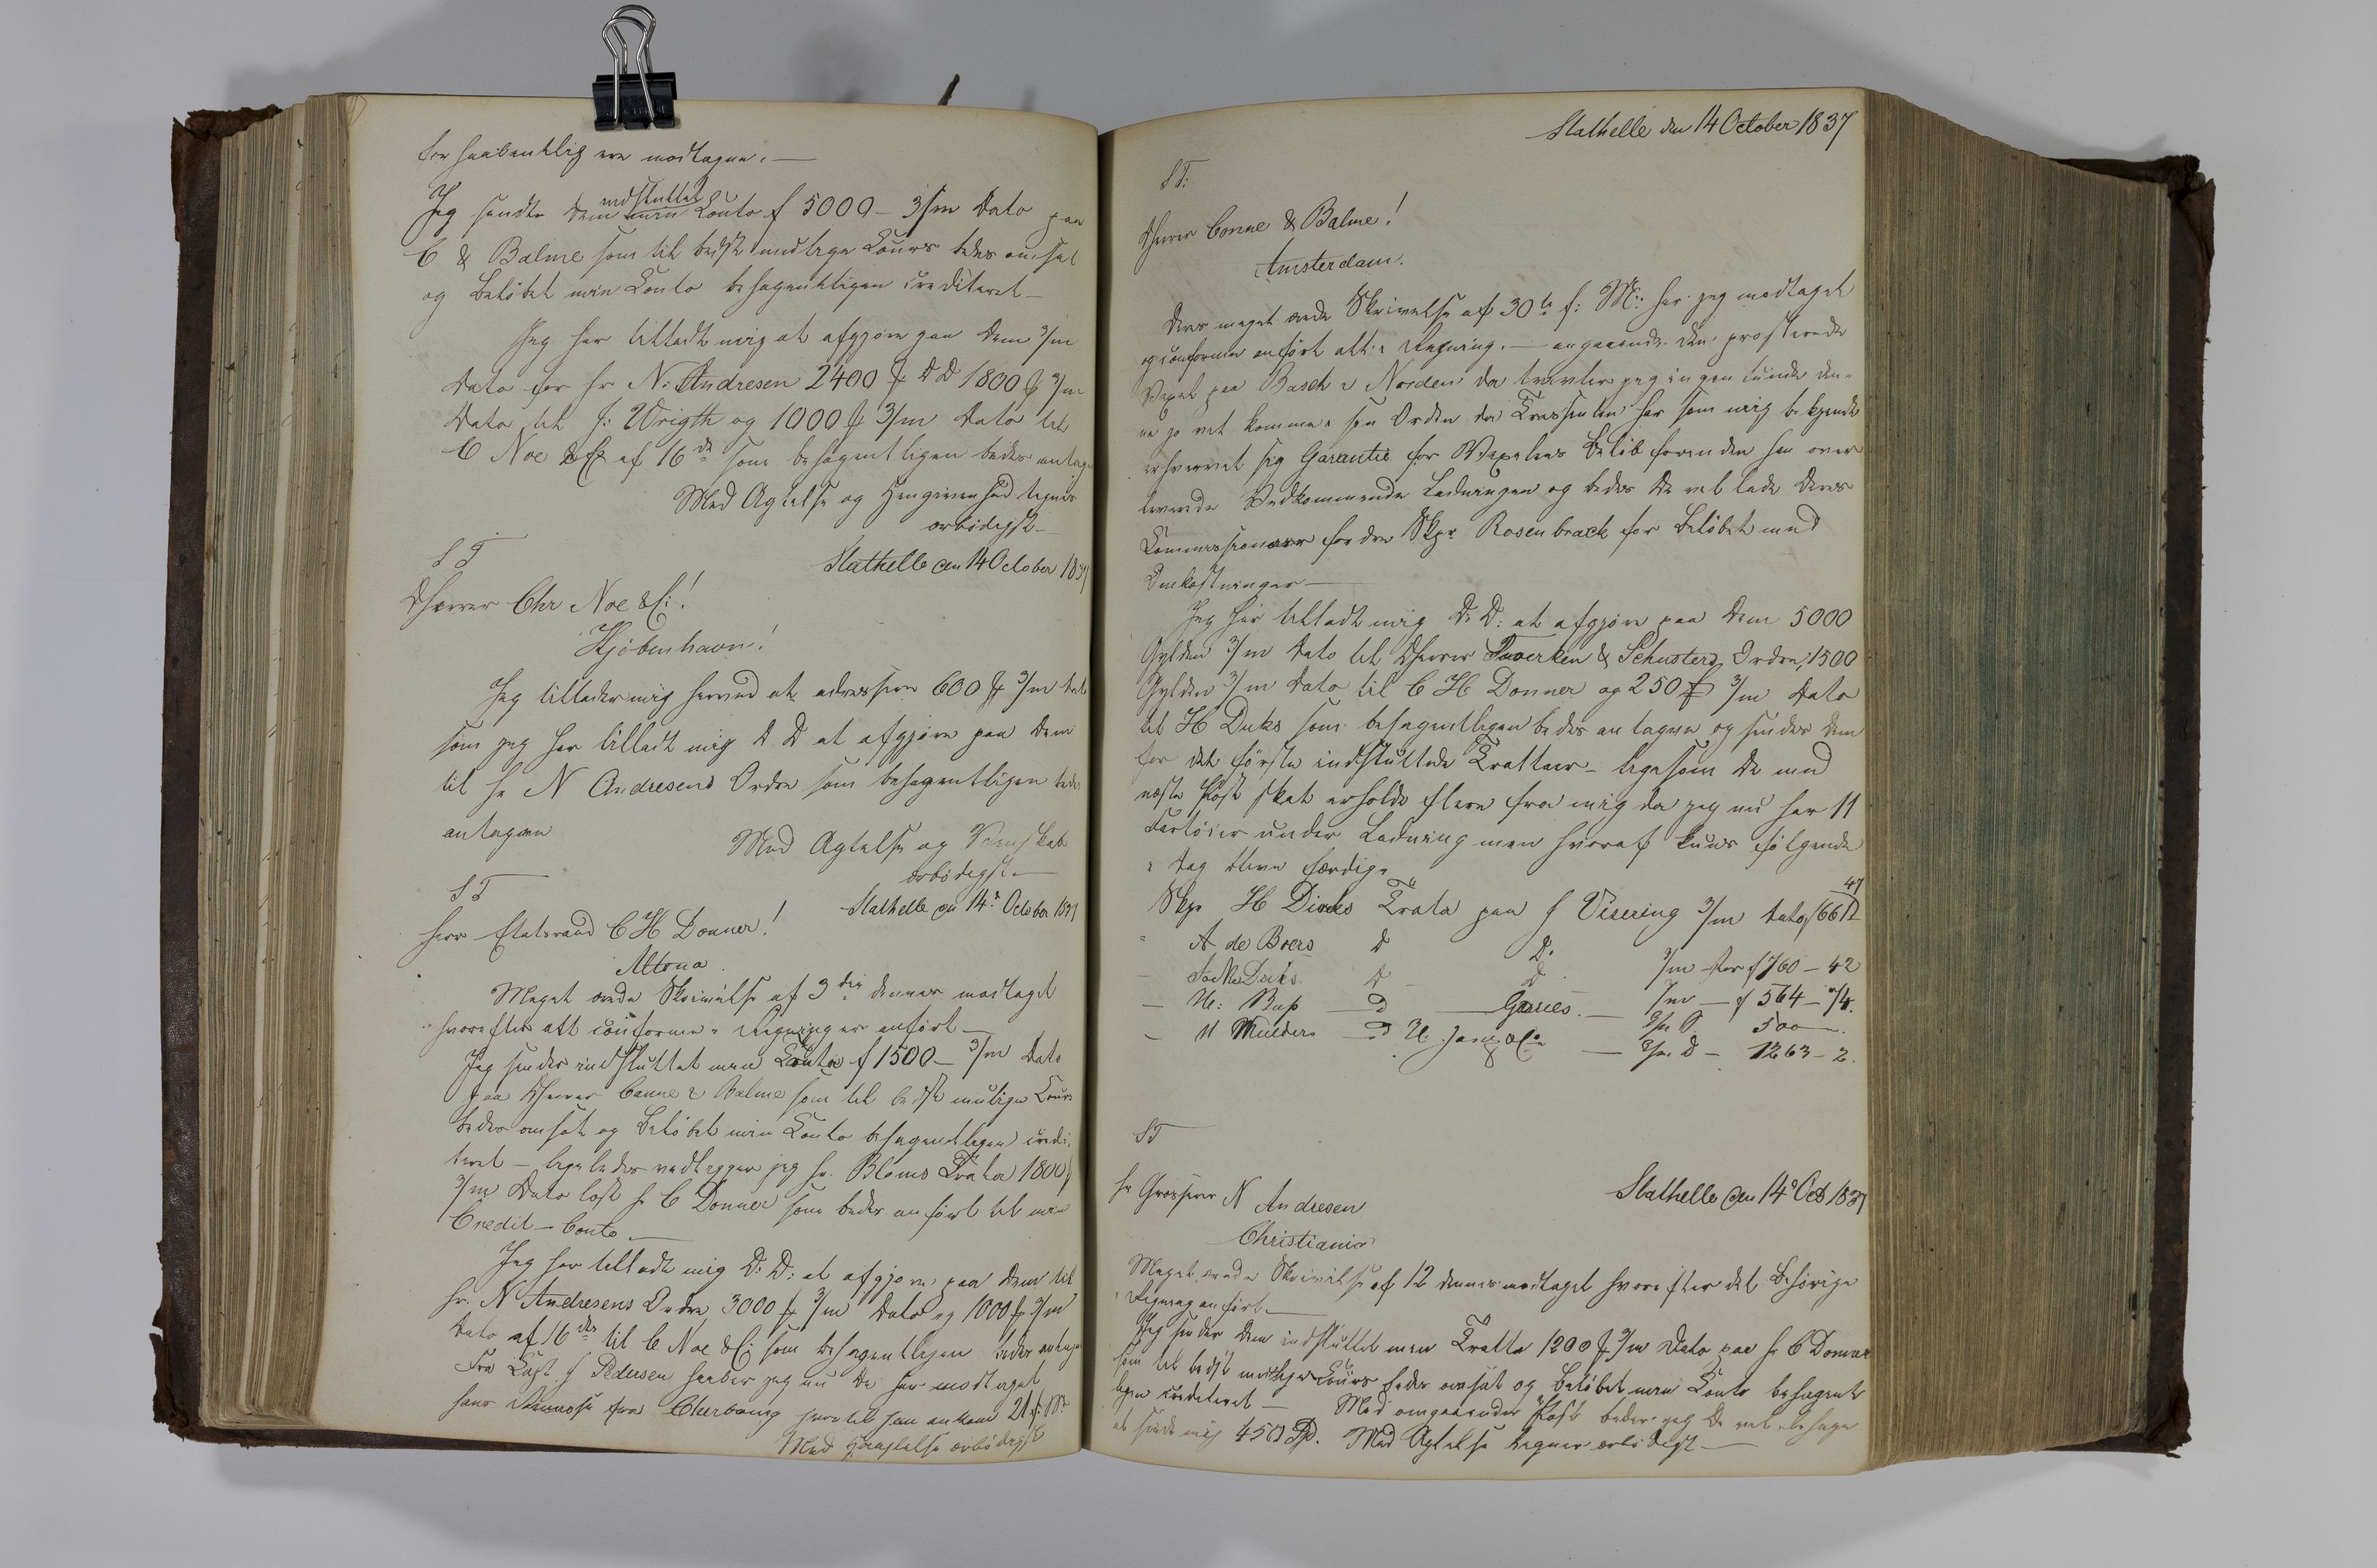 for haabentlig ere modtagne. —
Jeg sendte Dem indsluttet min Conto f 5000 — 3/m Dato paa
C & Balme som til bedst muelige Cours bedes omsat
og Beløbet min Conto behagentligen crediteret —
Jeg har tilladt mig at afgjøre paa Dem 3/m
Dato for Hr N. Andresen 2400 D D 1800 3/m
Dato til J: Wrigth og 1000 3/m Dato til
C Noe & C af 16de som behagentligen bedes antagen
Med Agtelse og Hengivenhed tegner
ærbødigst —
S T
Stathelle den 14 October 1837
DHerrer Chr Noe & C:!
Kjøbenhavn!
Jeg tillader mig herved at adressere 600 3/m Dato
som jeg har tilladt mig D D at afgjøre paa Dem
til Hr N Andresens Ordre som behagentligen bedes
antagen
Med Agtelse og Venskab
ærbødigst —
S T
Stathelle den 14d October 1837
Herr Etatsraad C H Donner!
Altona
Meget ærede Skrivelse af 3die dennes modtaget
hvorefter alt conforme i Regning er anført —
Jeg sender indsluttet min Conto f 1500 — 3/m Dato
paa DHerrer Canne & Balme som til bedst mulige Cours
bedes omsat og Beløbet min Conto behagentligen credi-
teret — ligeledes vedlegger jeg Hr. Bloms Trata 1800
3/m Dato Hr C Donner som bedes anført til min
Credit — Conto —
Jeg har tilladt mig D: D: at afgjøre paa Dem til
Hr. N Andresens Ordre 3000 3/m Dato og 1000 3/m
Dato af 16de til C Noe & C: som behagentligen bedes antagen
Fra Capt. J Pedersen haaber jeg nu De har modtaget
hans fra Cherbourg hvortil han ankom 21 f: M:
Med Høiagtelse ærbødigst
Stathelle den 14 October 1837
S T:
DHerrer Conne & Balme!
Amsterdam.
Deres meget ærede Skrivelse af 30te f: M: har jeg modtaget
og conforme anført alt i Regning. — angaaende den protesterede
Vexel paa Basch i Norden da tvivler jeg ingenlunde den-
ne jo vil komme i sin Orden da Trassenten har som mig bekjendt
erhvervet sig Garantie for Vexelens Beløb forenden han over
leverede Vedkommende Ladningen og bedes De vel lade Deres
Commissionær fordre Skpr Rosenbrack for Beløbet med
Omkostninger —
Jeg har tilladt mig D: D: at afgjøre paa Dem 5000
Gylden 3/m Dato til DHerrer Taverken & Schusters Ordre, 1500
Gylden 3/m Dato til C H Donner og 250 f 3/m Dato
til H Duks som behagentligen bedes antagen og sendes Dem
for det første indsluttede Trattaer — ligesom De med
næste Post skal erholde flere fra mig da jeg nu har 11
Fartøier under Ladning men hvoraf kuns følgende
i Dag blive færdige
Skpr H Dirks Trata paa J Visering 3/m Dato f 661 47
" A de Boers D D. 3/m for f 760 — 42
— D D 3/m — f 564 — 74.
— H: Buss D Garies — 3/m D 500 —.
— H Mulders D — 3/m D — 1263 — 2.
S T
Stathelle den 14d Oct 1837
Hr Grosserer N Andresen
Christiania
Meget ærede Skrivelse af 12 dennes modtaget hvorefter det Behørige
i Regning anført —
Jeg sender Dem indsluttet min Tratta 1200 3/m Dato paa Hr C Donner
som til bedst muelige Cours bedes omsat og Beløbet min Conto behagent
ligen crediteret — Med omgaaende Post beder jeg De vil behage
at sende mig 450 Spd. Med Agtelse tegner ærbødigst —